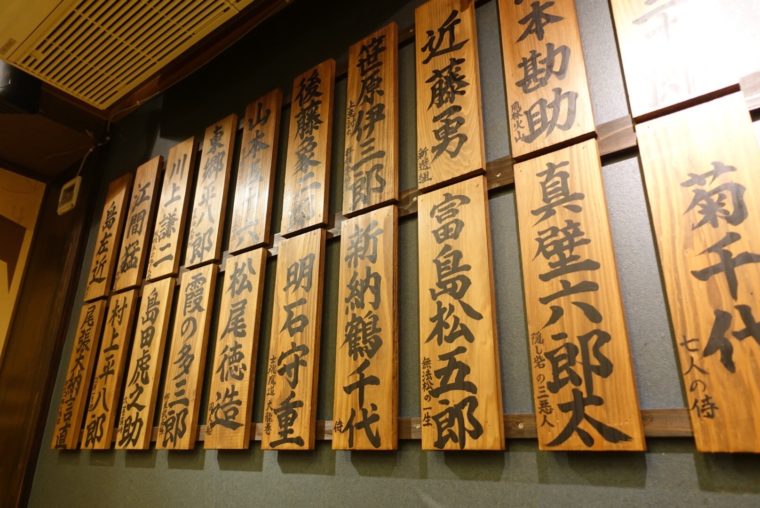 近藤勇
新選組
本勘助
風林火山
笹原伊三郎
後藤
山本
東郷平八郎
川上謙二
江間猛
島左近
菊千代
七人の侍
真壁六郎太
隠し砦の三悪人
富島松五郎
無法松の一生
新納鶴千代
侍
明石守重
松尾徳造
霞の多三郎
島田虎之助
村上平八郎
尾張大納言